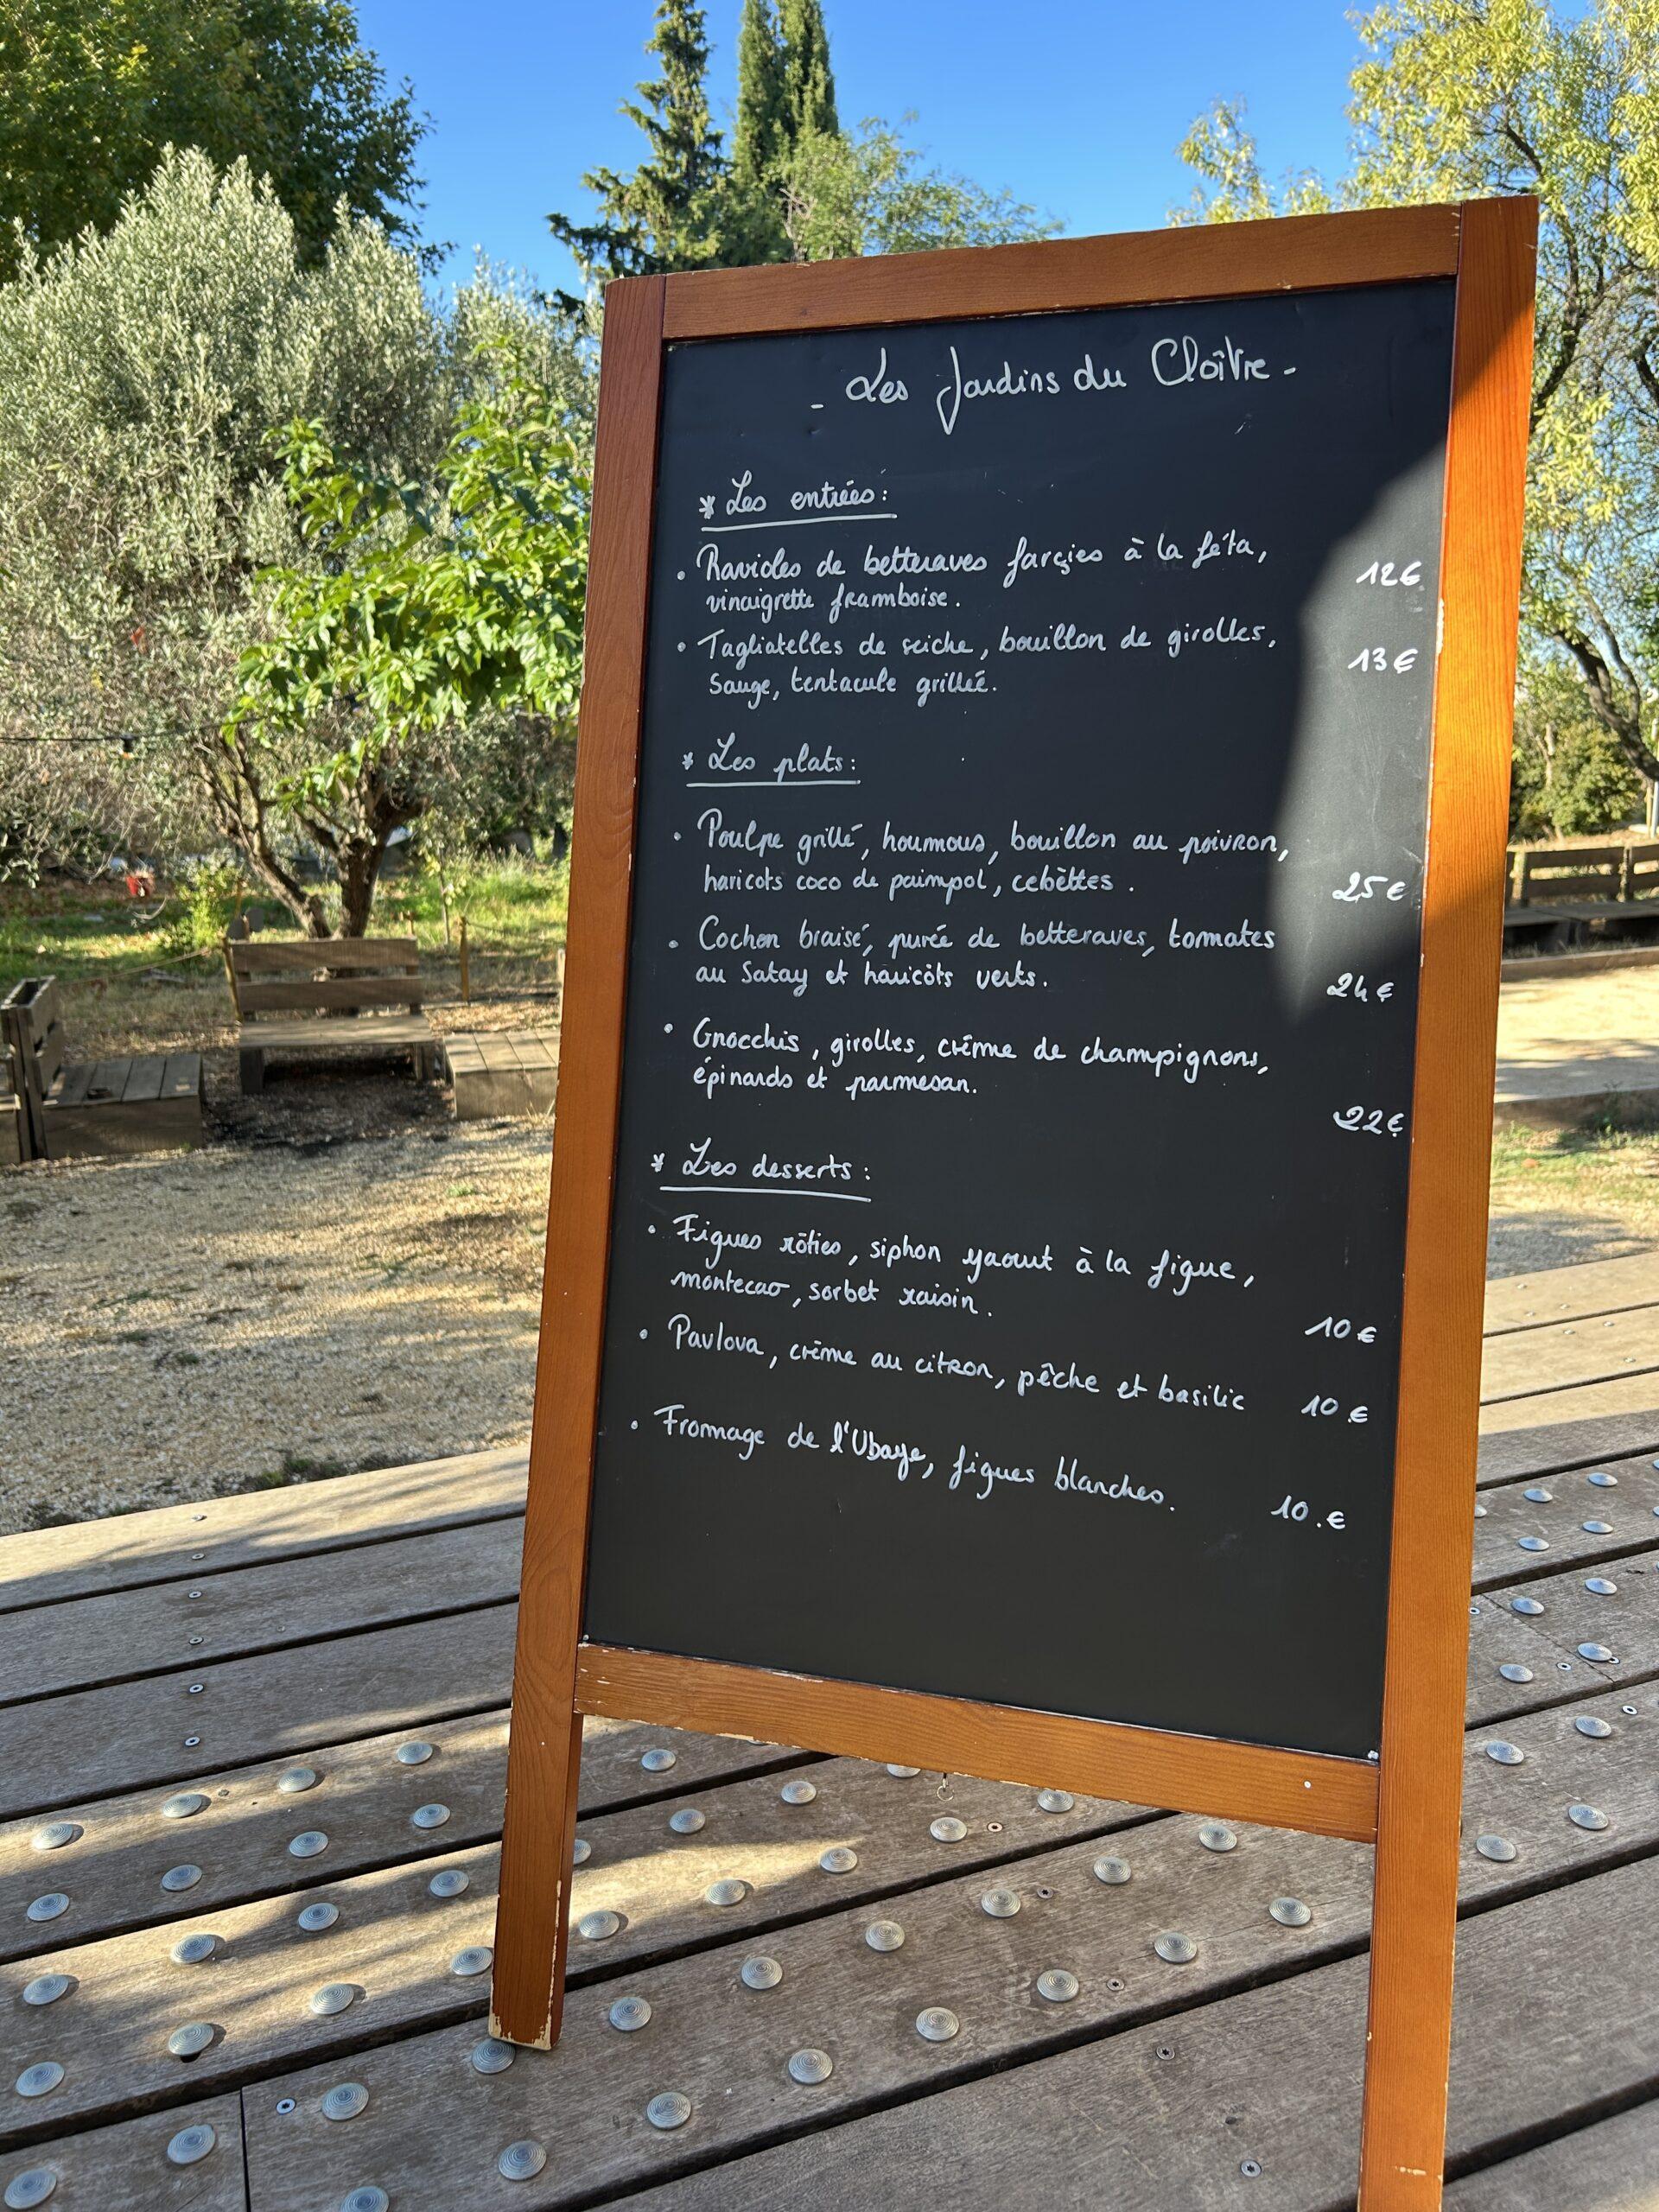 - Les Jardins du Cloître -
* Les entrées :
• Ravioles de betteraves farçies à la féta,
vinaigrette framboise. 12€
• Tagliatelles de seiche, bouillon de girolles,
Sauge, tentacule grillée. 13€
* Les plats :
• Poulpe grillé, houmous, bouillon au poivron,
haricots coco de paimpol, cebèttes. 25€
• Cochon braisé, purée de betteraves, tomates
au Satay et haricots verts. 24€
• Gnocchis, girolles, crème de champignons,
épinards et parmesan.
22€
* Les desserts :
• Figues rôties, siphon yaourt à la figue,
montecao, sorbet raisin.
10€
• Pavlova, crème au citron, pêche et basilic 10€
• Fromage de l'Ubaye, figues blanches. 10.€